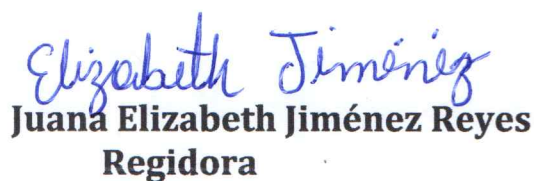 Elizabeth Jiménez
Juana Elizabeth Jiménez Reyes
Regidora